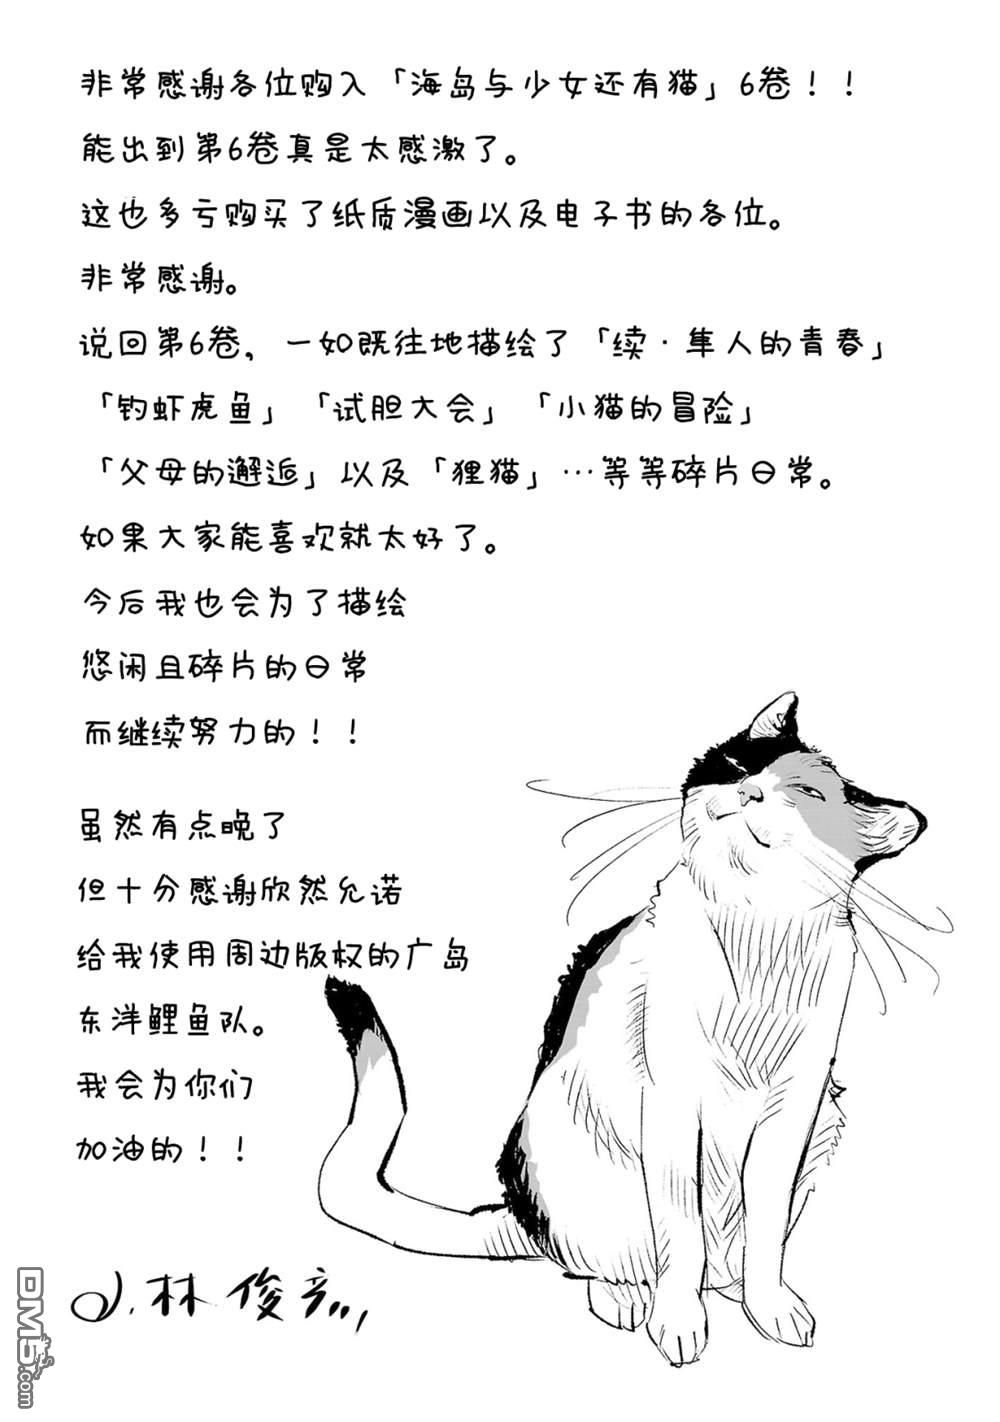 非常感谢各位购入「海岛与少女还有猫」6卷！！
能出到第6卷真是太感激了。
这也多亏购买了纸质漫画以及电子书的各位。
非常感谢。
说回第6卷，一如既往地描绘了「续·隼人的青春」
「钓虾虎鱼」「试胆大会」「小猫的冒险」
「父母的邂逅」以及「狸猫」…等等碎片日常。
如果大家能喜欢就太好了。
今后我也会为了描绘
悠闲且碎片的日常
而继续努力的！！
虽然有点晚了
但十分感谢欣然允诺
给我使用周边版权的广岛
东洋鲤鱼队。
我会为你们
加油的！！
小林俊彦
DM5.com